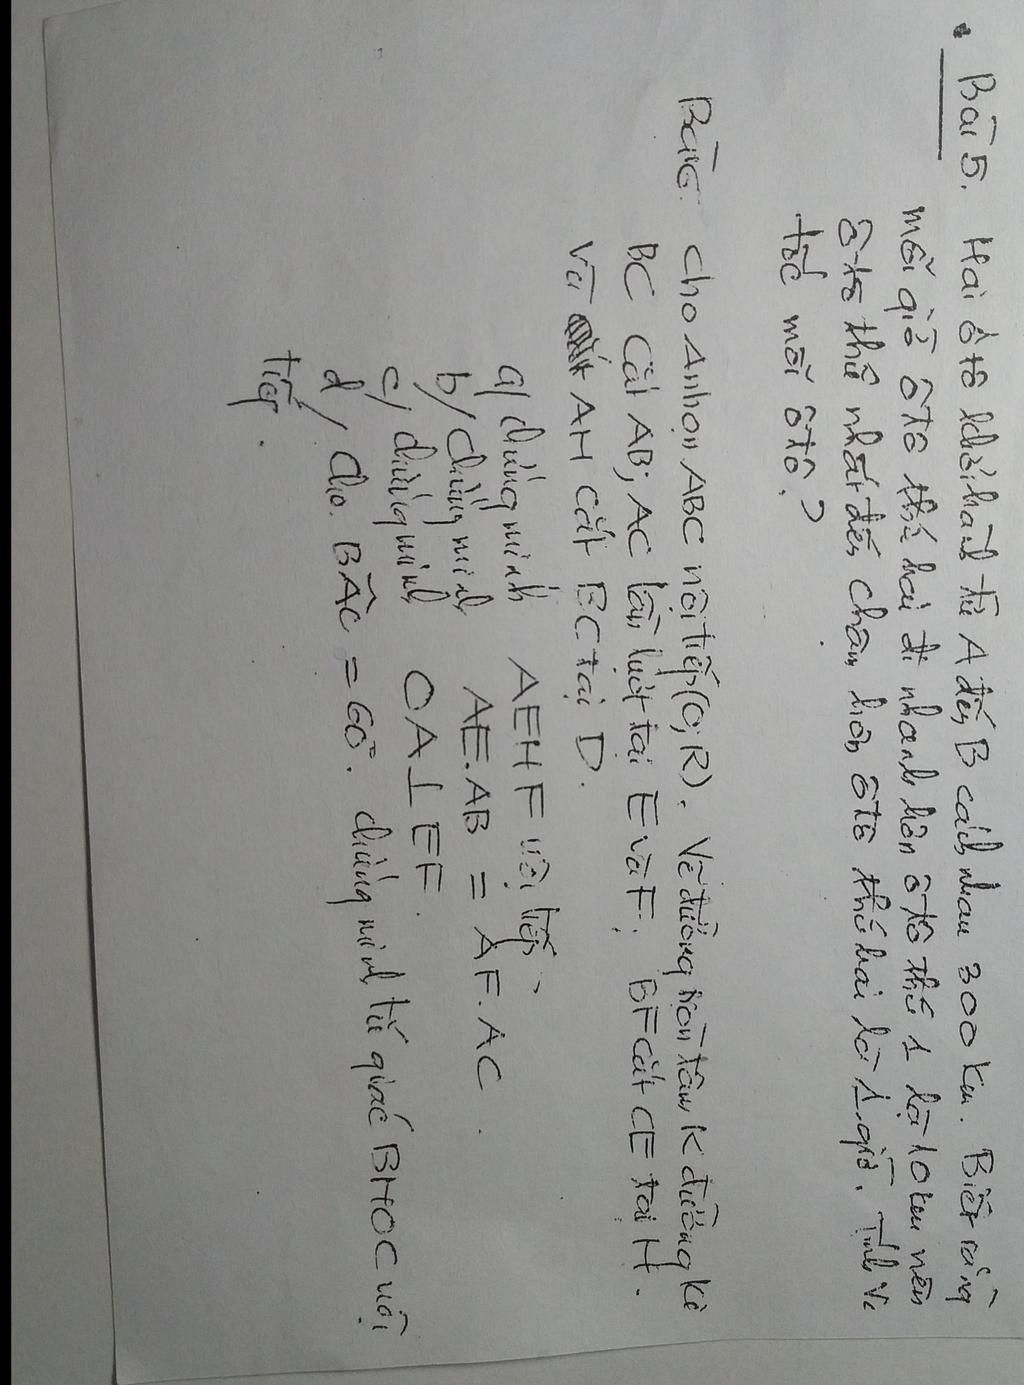 Bài 5. Hai ô tô khởi hành từ A đến B cách nhau 300 km. Biết rằng
mỗi giờ ô tô thứ hai đi nhanh hơn ô tô thứ 1 là 10 km nên
ô tô thứ nhất đến chậm hơn ô tô thứ hai là 1 giờ. Tính vậ
tốc mỗi ô tô?
Bài 6. Cho Δ nhọn ABC nội tiếp (O; R). Vẽ đường tròn tâm K đường kí
BC cắt AB; AC lần lượt tại E và F; BF cắt CE tại H.
Và AH cắt BC tại D.
a/ chứng minh AEHF nội tiếp
b/ chứng minh AE.AB = AF.AC.
c/ chứng minh OA ⊥ EF.
d/ Cho BÂC = 60°. chứng minh tứ giác BHOC nội
tiếp.